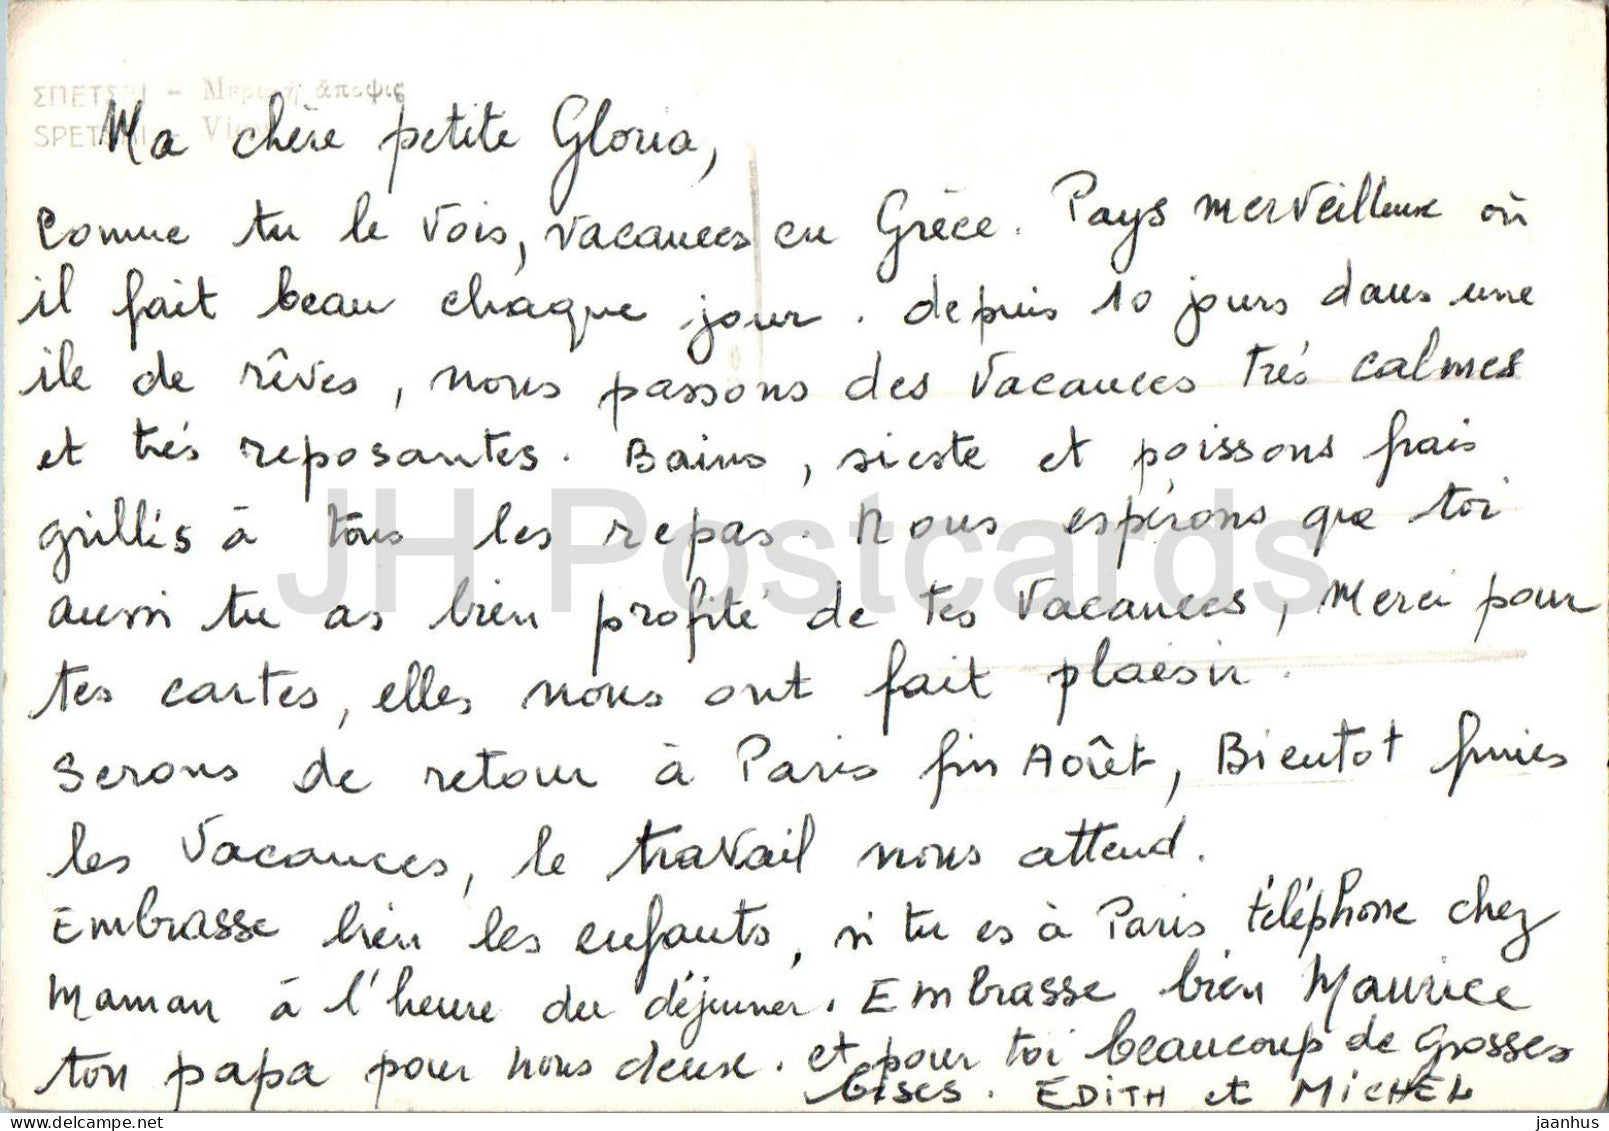 ΣΠΕΤΣΑΙ - Μερική ἄποψις
SPETSAI -
Ma chère petite Gloria,
Comme tu le vois, vacances en Grèce. Pays merveilleux où
il fait beau chaque jour. depuis 10 jours dans une
ile de rêves, nous passons des vacances trés calmes
et trés reposantes. Bains, sieste et poissons frais
grillés à tous les repas. Nous espérons que toi
aussi tu as bien profité de tes vacances, Merci pour
tes cartes, elles nous ont fait plaisir.
Serons de retour à Paris fin Août, Bientot finies
les vacances, le travail nous attend.
Embrasse bien les enfants, si tu es à Paris téléphone chez
Maman à l'heure du déjeuner. Embrasse bien Maurice
ton papa pour nous deux. et pour toi beaucoup de grosses
bises. EDITH et MICHEL
JH Postcards
delcampe.net
jaanhus